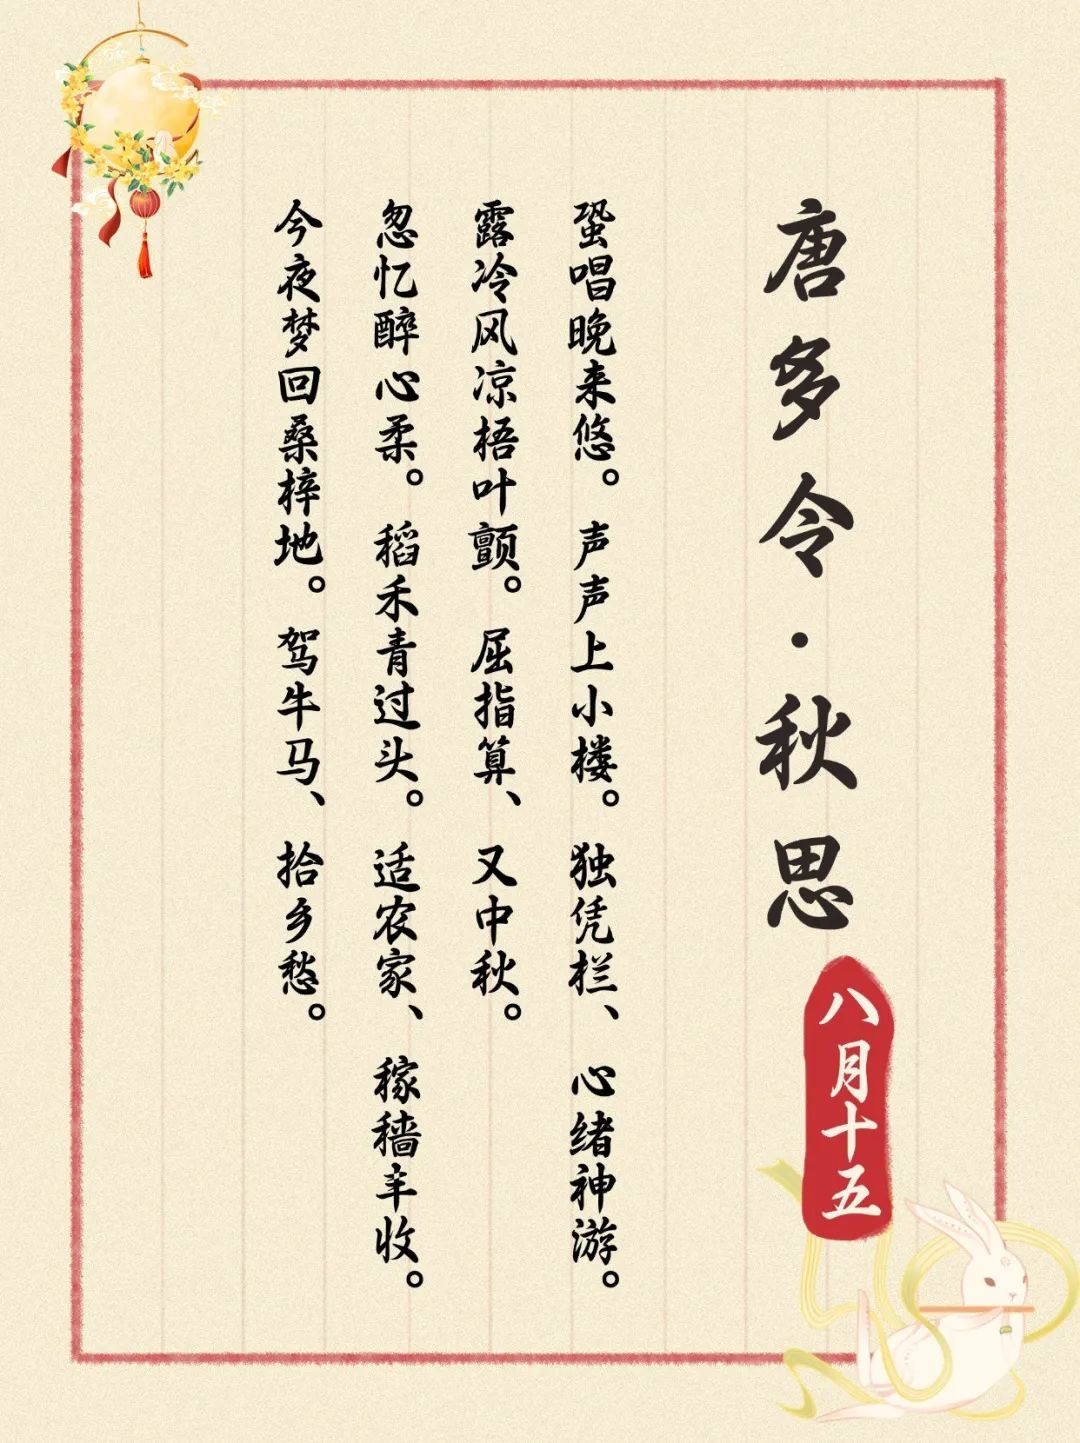 唐多令·秋思
八月十五
蛩唱晚来悠。声声上小楼。独凭栏、心绪神游。
露冷风凉梧叶颤。屈指算、又中秋。
忽忆醉心柔。稻禾青过头。适农家、稼穑丰收。
今夜梦回桑梓地。驾牛马、拾乡愁。